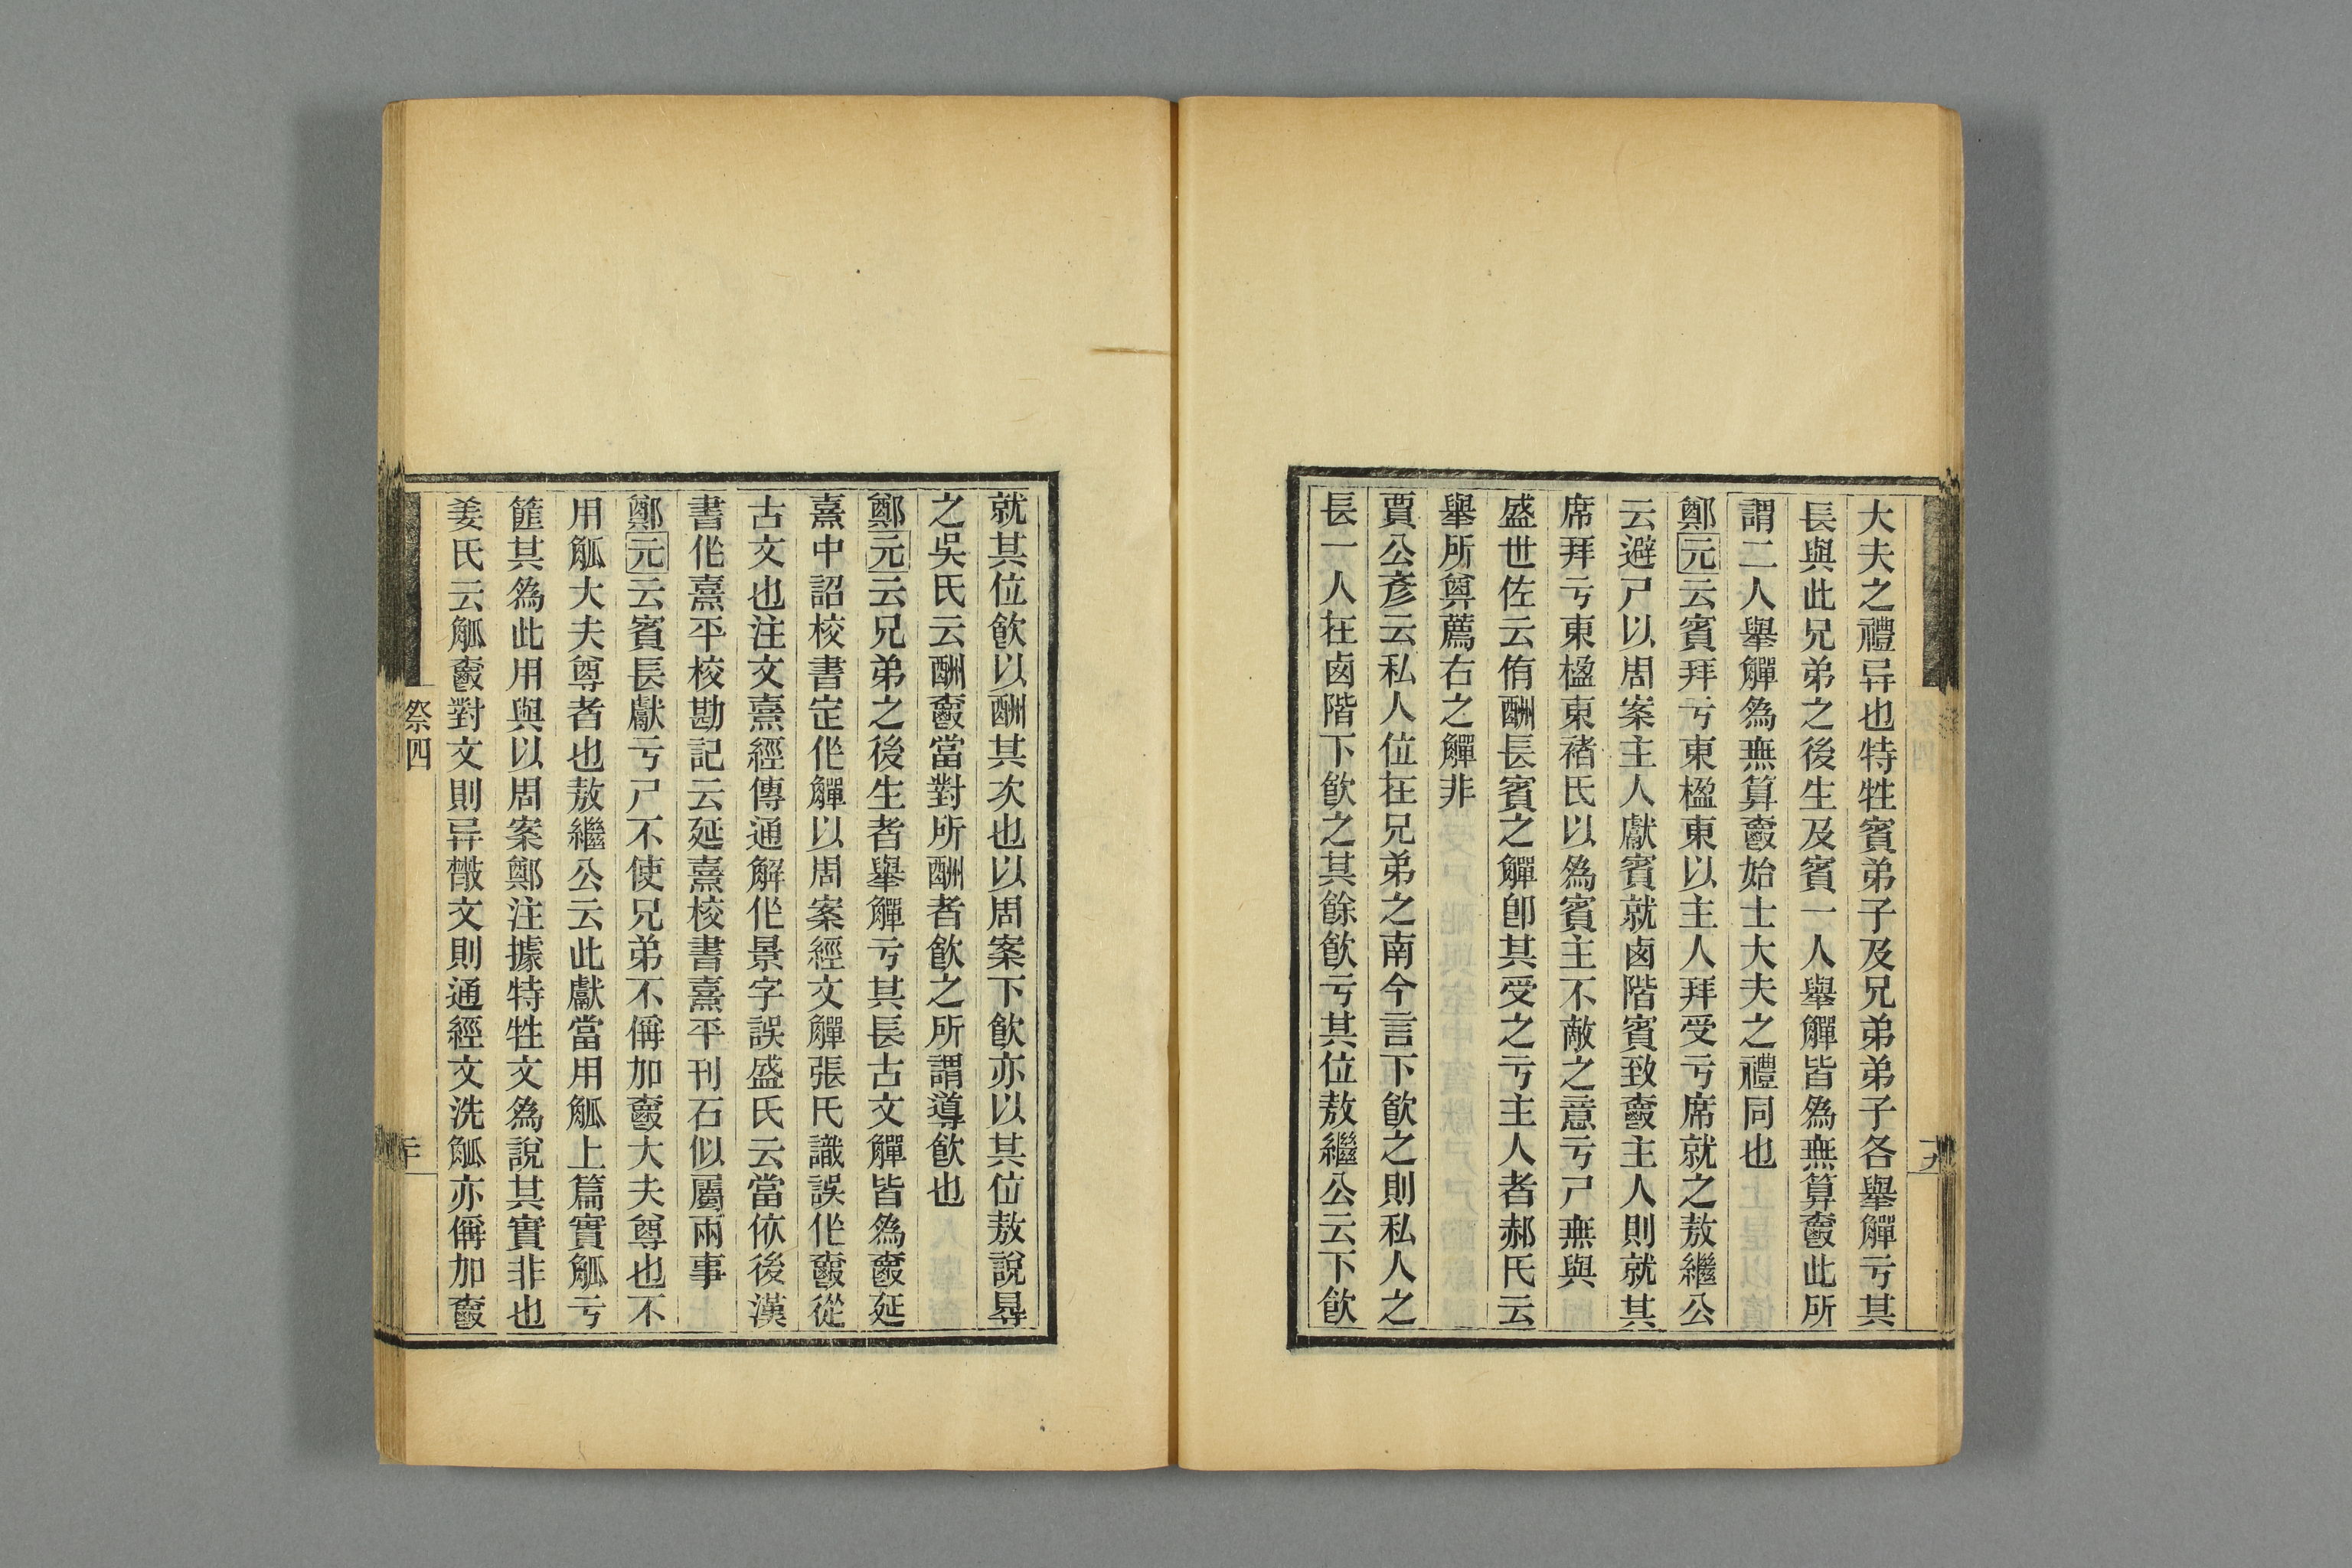 大夫之禮异也特牲賓弟子及兄弟弟子各舉觶亏其
長與此兄弟之後生及賓一人舉觶皆為無算𣝣此所
謂二人舉觶為無算𣝣始士大夫之禮同也
鄭元云賓拜亏東楹東以主人拜受亏席就之敖繼公
云避尸以周案主人獻賓就卤階賓致𣝣主人則就其
席拜亏東楹東褚氏以為賓主不敵之意亏尸無與
盛世佐云侑酬長賓之觶卽其受之亏主人者郝氏云
舉所奠薦右之觶非
賈公彥云私人位在兄弟之南今言下飮之則私人之
長一人在卤階下飮之其餘飮亏其位敖繼公云下飮
就其位飮以酬其次也以周案下飮亦以其位敖說㝵
之吳氏云酬𣝣當對所酬者飮之所謂導飮也
鄭元云兄弟之後生者舉觶亏其長古文觶皆為𣝣延
熹中詔校書定作觶以周案經文觶張氏識誤作𣝣從
古文也注文熹經傳通解作景字誤盛氏云當依後漢
書作熹平校勘記云延熹校書熹平刊石似屬兩事
鄭元云賓長獻亏尸不使兄弟不偁加𣝣大夫尊也不
用觚大夫尊者也敖繼公云此獻當用觚上篇實觚亏
篚其為此用與以周案鄭注據特牲文為說其實非也
姜氏云觚𣝣對文則异㪔文則通經文洗觚亦偁加𣝣
祭四